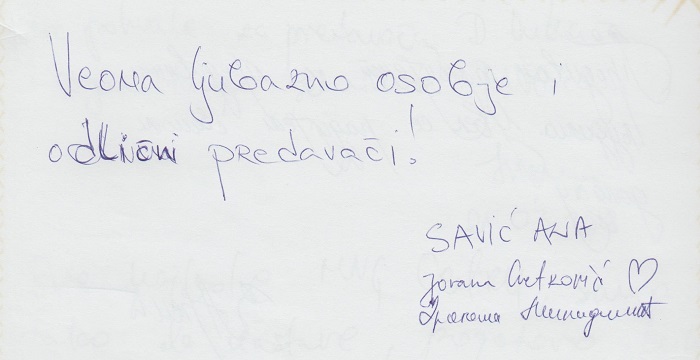 Veoma ljubazno osoblje i
odlični predavači!
SAVIĆ ANA
Jovana Cvetković ♡